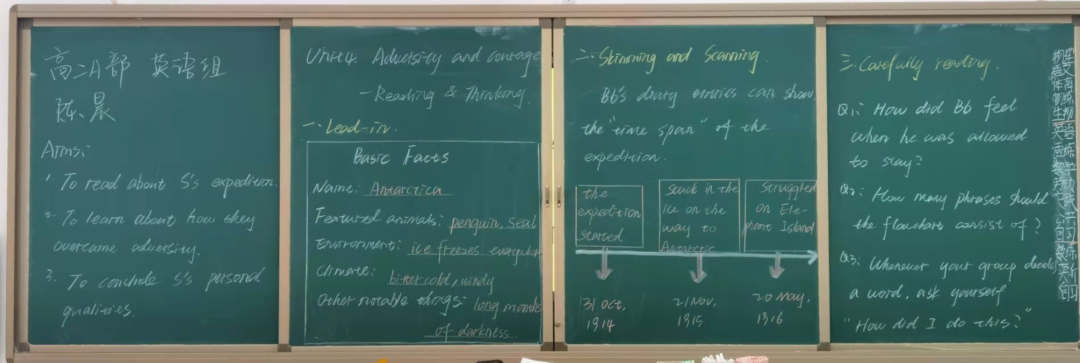 高二A部 英语组
陈晨
Aims:
1. To read about S's expedition.
2. To learn about how they
overcome adversity.
3. To conclude S's personal
qualities.
Unit4. Adversity and courage
— Reading & Thinking
一. Lead-in.
Basic Facts
Name: Antarctica
Featured animals: penguin, seal
Environment: ice freezes
Climate: bitter cold, windy
Other notable things: long months
of darkness
二. Skimming and Scanning.
Bb's diary entries can show
the "time span" of the
expedition.
the
expedition
started
Stuck in the
ice on the
way to
Antarctic
Struggled
on Ele-
phant Island
31 Oct,
1914
21 Nov,
1915
20 May,
1916
三. Carefully reading.
Q1: How did Bb feel
when he was allowed
to stay?
Q2: How many phrases should
the flowchart consist of?
Q3: Whenever your group decides
a word, ask yourself
"How did I do this?"